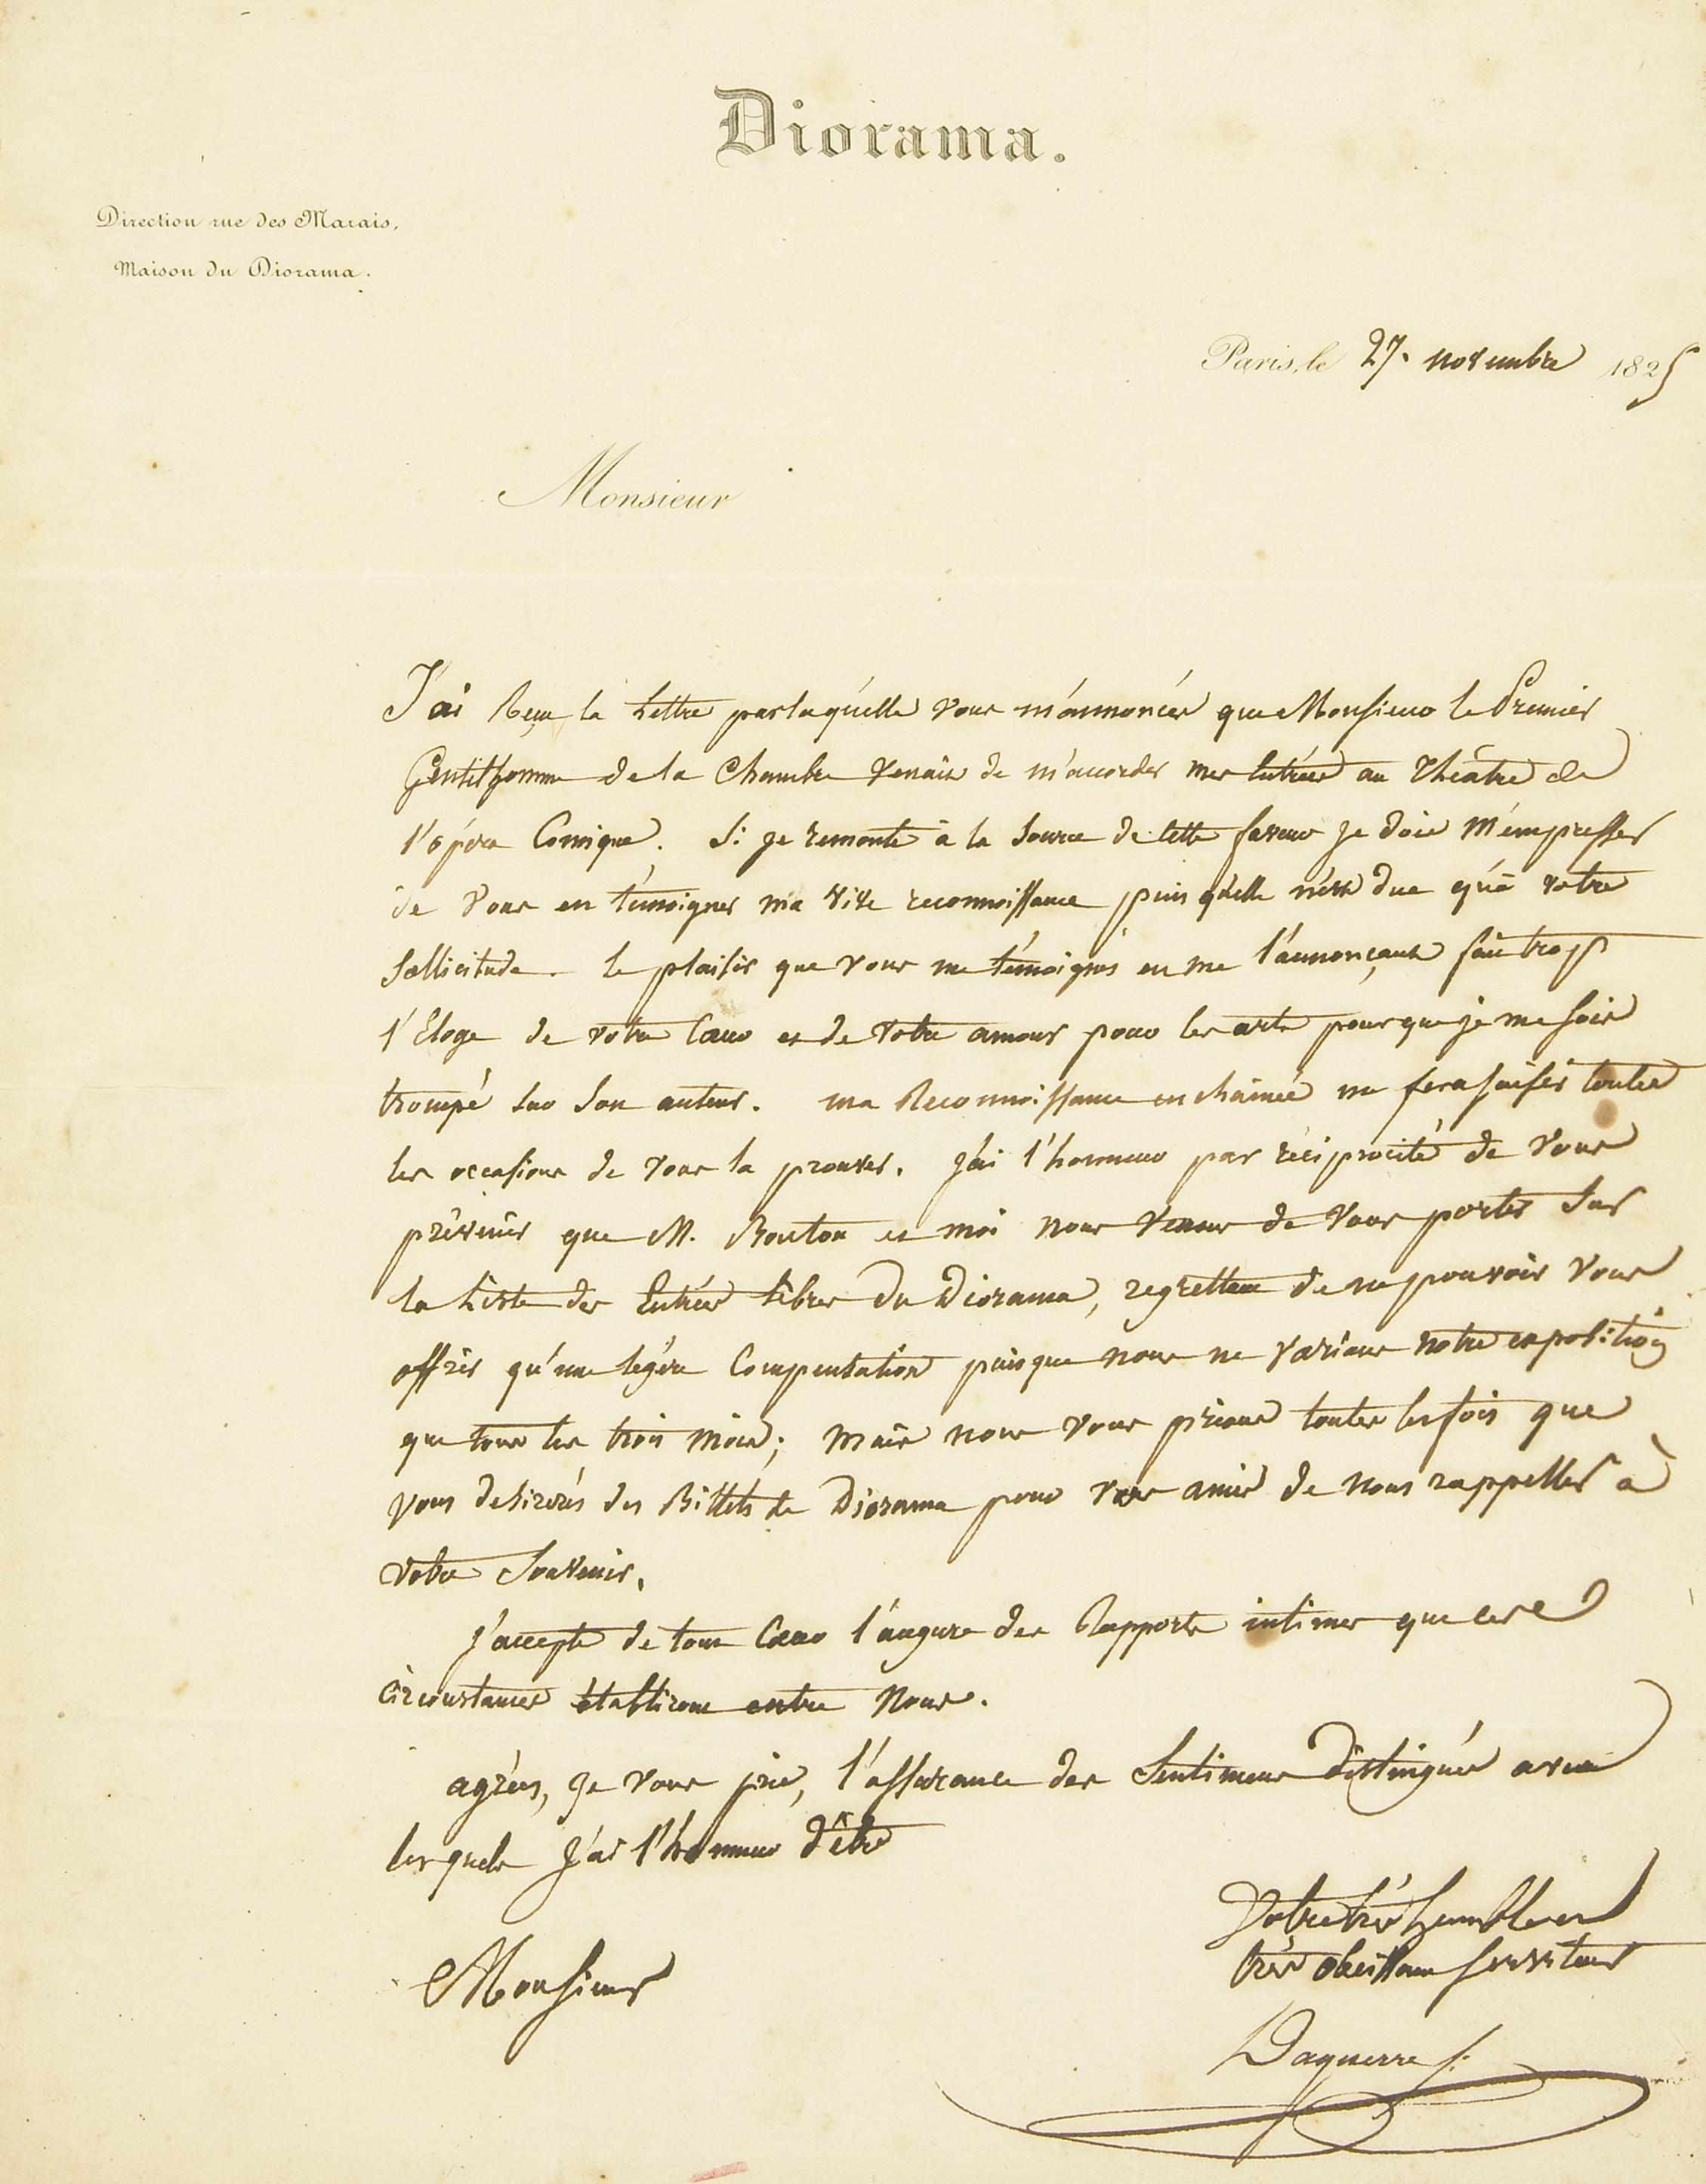 Diorama.
Direction rue des Marais,
Maison du Diorama.
Paris, le 27. novembre 1825
Monsieur
J'ai Reçu la Lettre par laquélle vous m'ánnoncés que Monsieur le Premier
Gentilhomme de la Chambre venait de m'accorder mes Entrées au Théatre de
l'opéra Comique. Si je remonte à la Source de cette faveur je dois m'émpresser
de vous en témoigner ma vive reconnoissance puis qu'elle n'est due qu'à votre
Sollicitude. le plaisir que vous me témoignés en me l'ánnonçant fait trop
l'Eloge de votre Cœur et de votre amour pour les arts pour que je me sois
trompé sur Son auteur. ma Reconnoissance enchainée me fera saisir toutes
les occasions de vous la prouver. J'ai l'honneur par réciprocité de vous
prévenir que M. Bouton et moi nous venons de vous porter Sur
la Liste des Entrées Libres du Diorama, regrettant de ne pouvoir vous
offrir qu'une légère Compensation puisque nous ne varions notre exposition
que tous les trois mois; mais nous vous prions toutes les fois que
vous desirerés des Billets de Diorama pour vos amis de nous rappeller à
votre Souvenir.
J'accepte de tout Cœur l'augure des Rapports intimes que les
Circonstances établiront entre Nous.
agrées, je vous prie, l'assurance des Sentimens distingués avec
lesquels j'ai l'honneur d'être
Monsieur
Votre très humble et
très obeissant serviteur
Daguerre